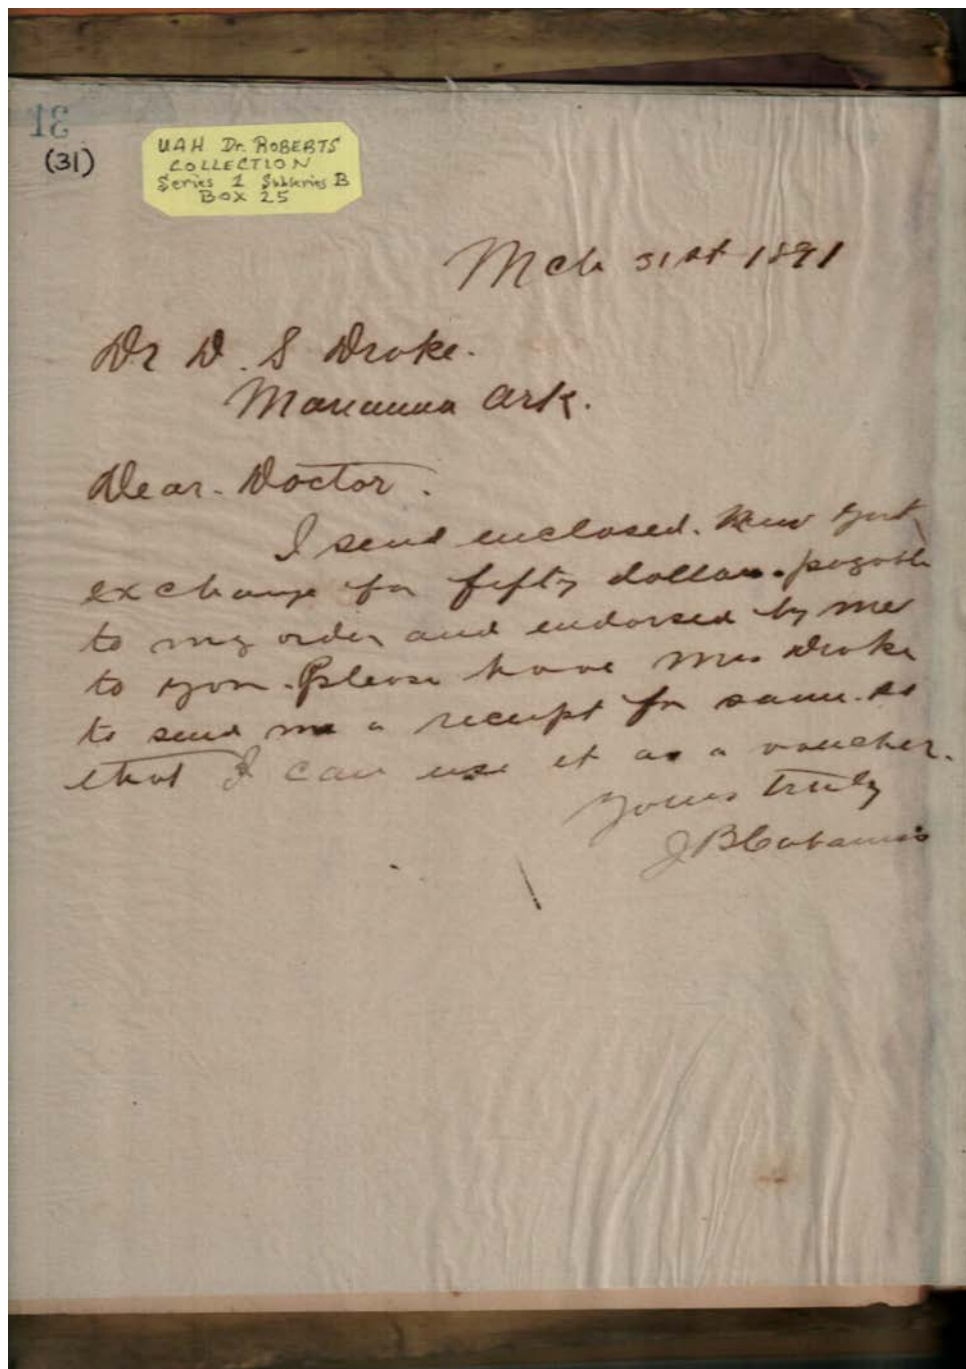 31
(31)
UAH Dr. ROBERTS
COLLECTION
Series 1 Subseries B
BOX 25
Mch 31st 1891
Dr D. S Drake.
Marianna Ark.
Dear. Doctor.
I send enclosed. New York
exchange for fifty dollars. payable
to my order and endorsed by me
to you. Please have Mrs Drake
to send me a receipt for same. so
that I can use it as a voucher.
Yours truly
J B Cabaniss